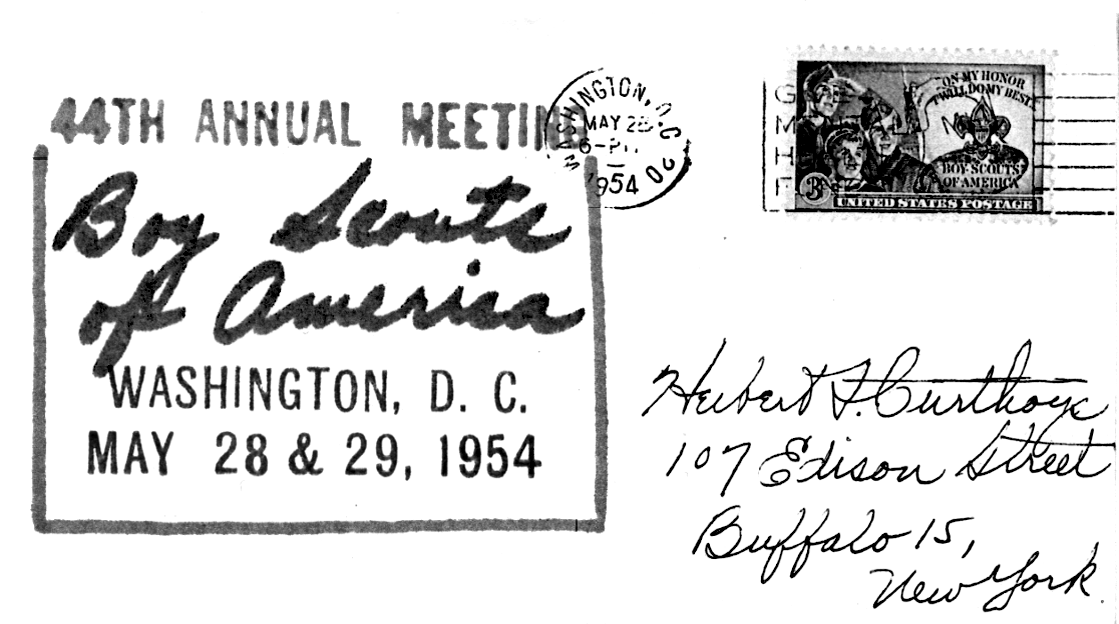 44TH ANNUAL MEETIN
Boy Scouts
of America
WASHINGTON, D. C.
MAY 28 & 29, 1954
WASHINGTON, D.C. 20
MAY 28
1954
ON MY HONOR
I WILL DO MY BEST
BOY SCOUTS
OF AMERICA
3¢
UNITED STATES POSTAGE
Herbert F. Curthoys
107 Edison Street
Buffalo 15,
New York.